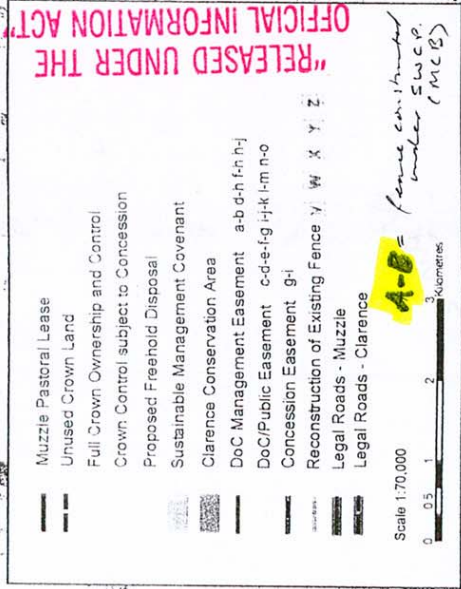 "RELEASED UNDER THE
OFFICIAL INFORMATION ACT"
Muzzle Pastoral Lease
Unused Crown Land
Full Crown Ownership and Control
Crown Control subject to Concession
Proposed Freehold Disposal
Sustainable Management Covenant
Clarence Conservation Area
DoC Management Easement a-b d-h f-n h-j
DoC/Public Easement c-d-e-f-g i-j-k l-m n-o
Concession Easement g-i
Reconstruction of Existing Fence V W X Y Z
Legal Roads - Muzzle
Legal Roads - Clarence
A-B = fence constructed
under SWCP.
(MCB)
Scale 1:70,000
0 0.5 1 2 3
Kilometres